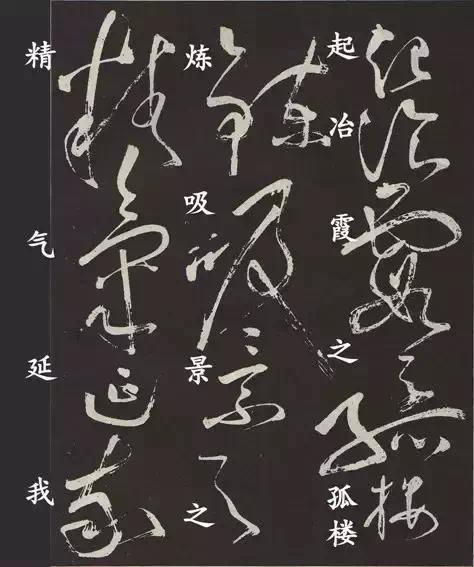 起冶霞之孤楼
炼吸景之
精气延我